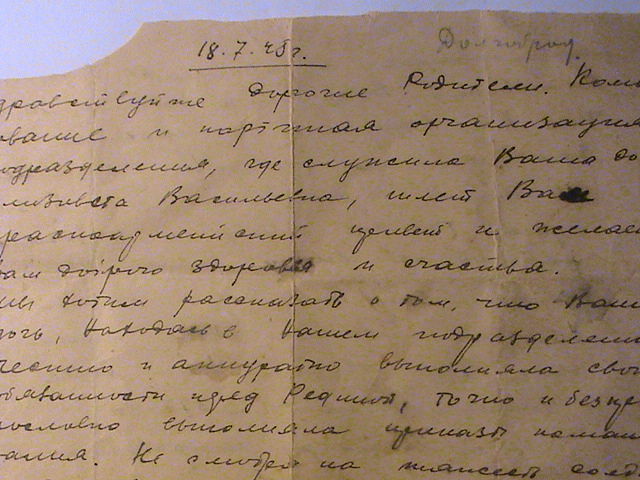 18.7.45г. Долгоброд.
дравствуйте дорогие Родители. Кома
ование и партийная организация
одразделения, где служила Ваша до
лизовета Васильевна, шлет Вам
расноармейский привет и желае
ам доброго здоровья и счастья.
мы хотим рассказать о том, что Ваш
очь, находясь в нашем подразделени
честно и аккуратно выполняла сво
бязанности перед Родиной, точно и беспре
ословно выполняла приказы коман
вания. Не смотря на тяжесть солд